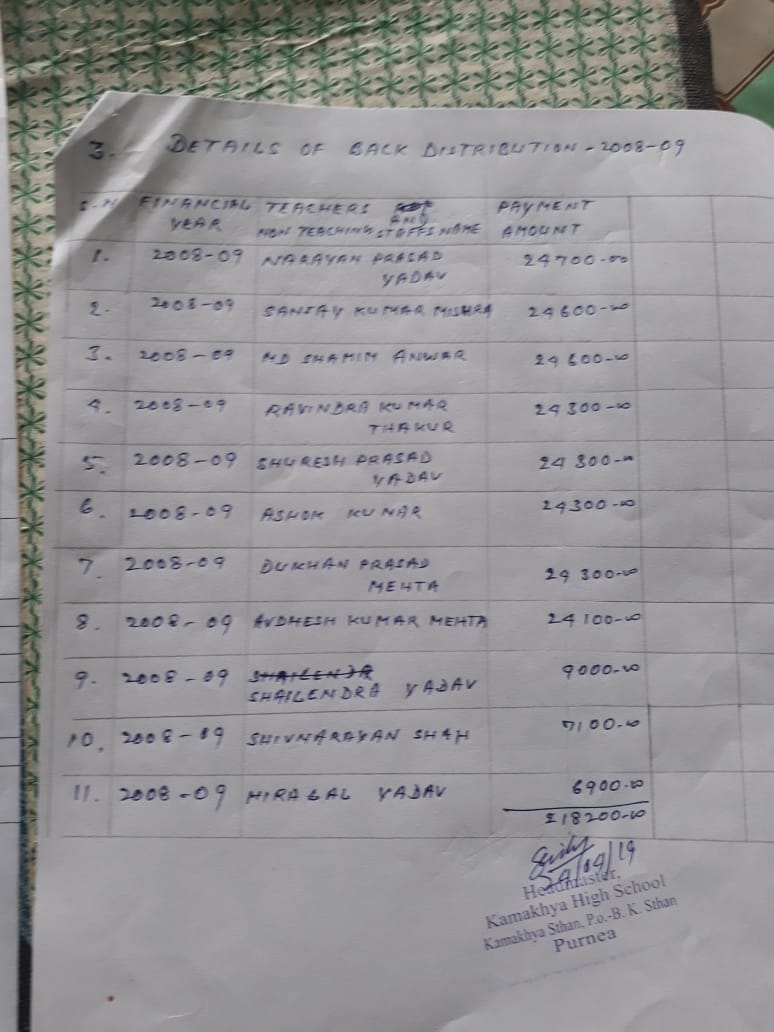 3. - DETAILS OF BACK DISTRIBUTION - 2008-09
S.N FINANCIAL YEAR TEACHERS AND NON TEACHING STOFFS NAME PAYMENT AMOUNT
1. 2008-09 NARAYAN PRASAD YADAV 24700-00
2. 2008-09 SANJAY KUMAR MISHRA 24600-00
3. 2008-09 MD SHAMIM ANWAR 24600-00
4. 2008-09 RAVINDRA KUMAR THAKUR 24300-00
5. 2008-09 SHURESH PRASAD YADAV 24300-00
6. 2008-09 ASHOK KUMAR 24300-00
7. 2008-09 DUKHAN PRASAD MEHTA 24300-00
8. 2008-09 AVDHESH KUMAR MEHTA 24100-00
9. 2008-09 SHAILENDRA YADAV 9000-00
10. 2008-09 SHIVNARAYAN SHAH 7100-00
11. 2008-09 HIRALAL YADAV 6900-00
218200-00
29/09/19
Headmaster,
Kamakhya High School
Kamakhya Sthan, P.o.-B. K. Sthan
Purnea